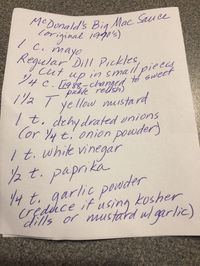 McDonald's Big Mac Sauce
(original 1991's)
1 c. mayo
Regular Dill Pickles,
cut up in small pieces
1/4 c. (1988-changed to sweet
pickle relish)
1 1/2 T yellow mustard
1 t. dehydrated onions
(or 1/4 t. onion powder)
1 t. white vinegar
1/2 t. paprika
1/4 t. garlic powder
(reduce if using kosher
dills or mustard w/ garlic)